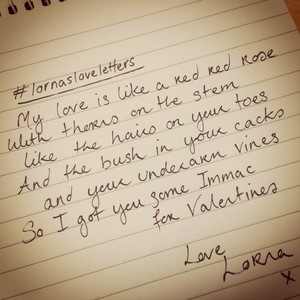 #lornasloveletters
My love is like a red red rose
With thorns on the stem
like the hairs on your toes
And the bush in your cacks
and your underarm vines
So I got you some Immac
for Valentines
Love
Lorna
x